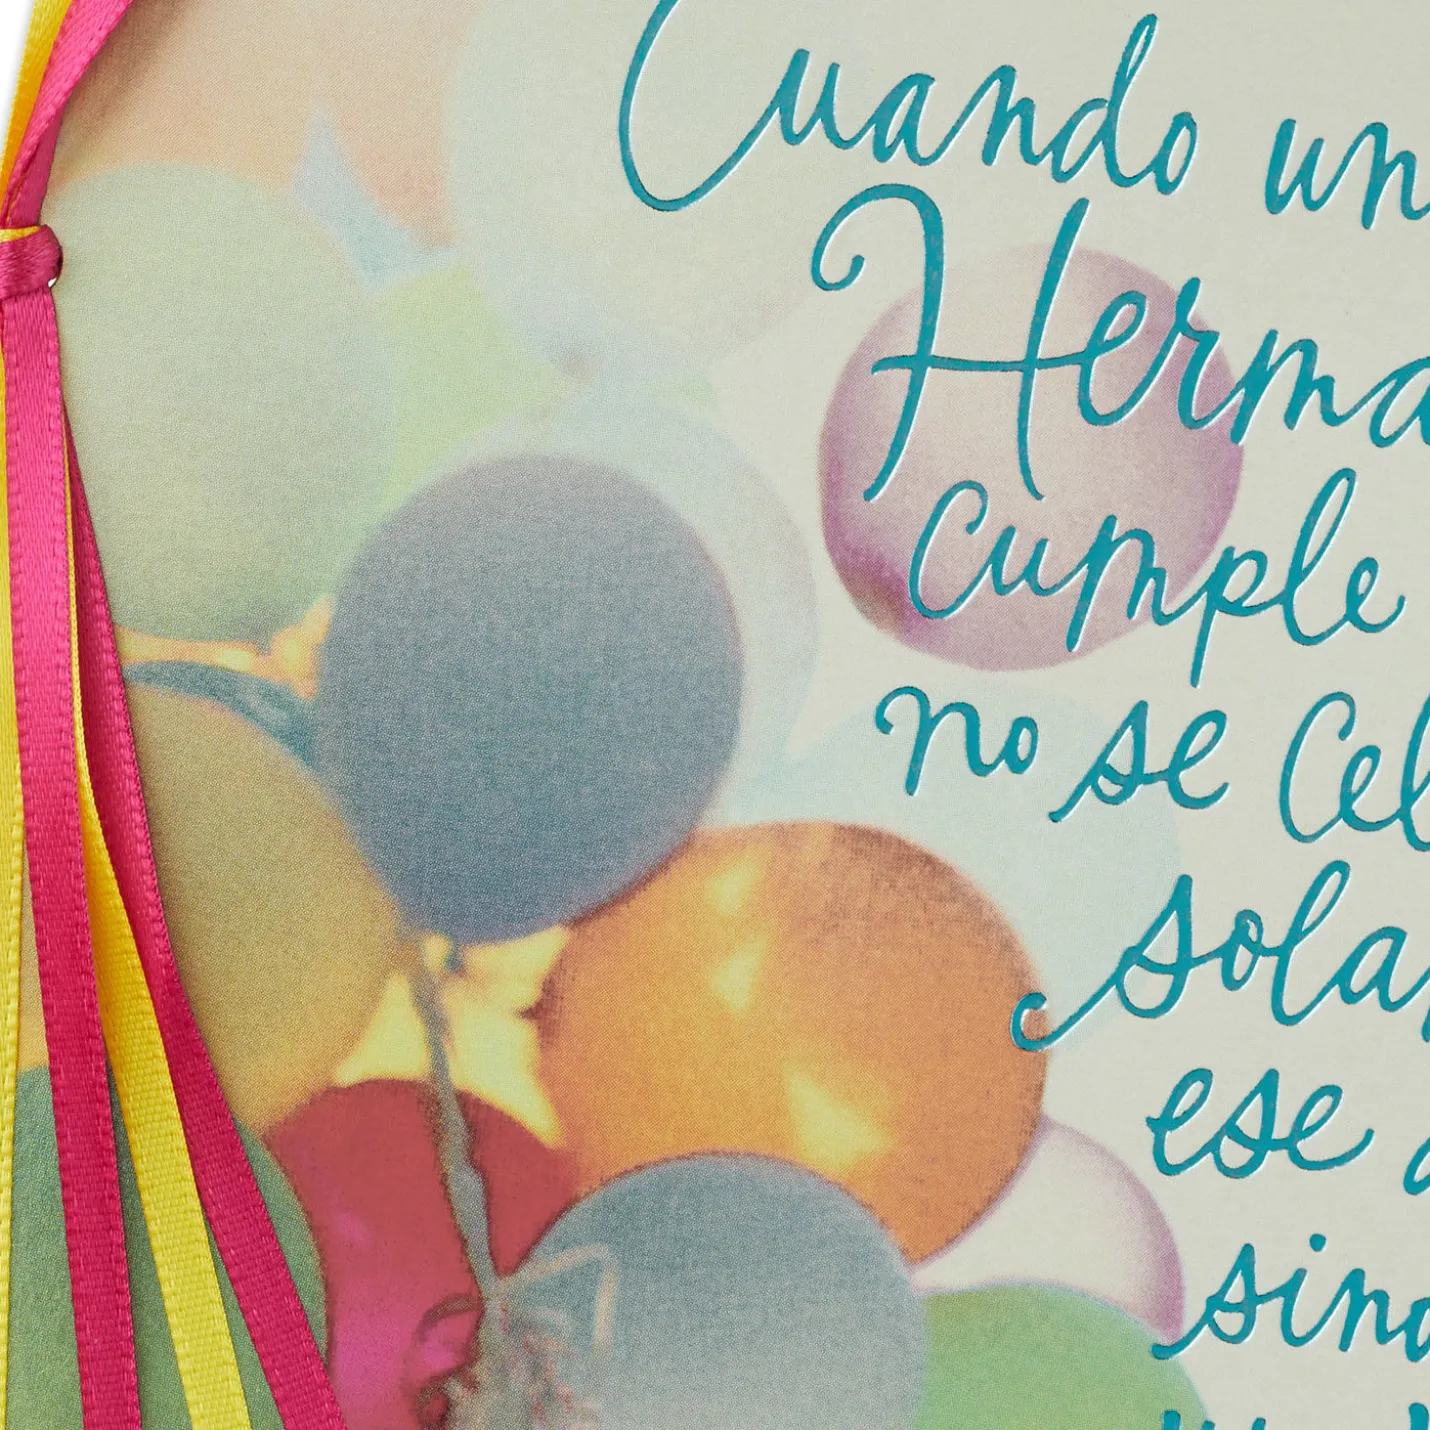 Cuando un
Herma
cumple
no se Cel
sola
ese
sin